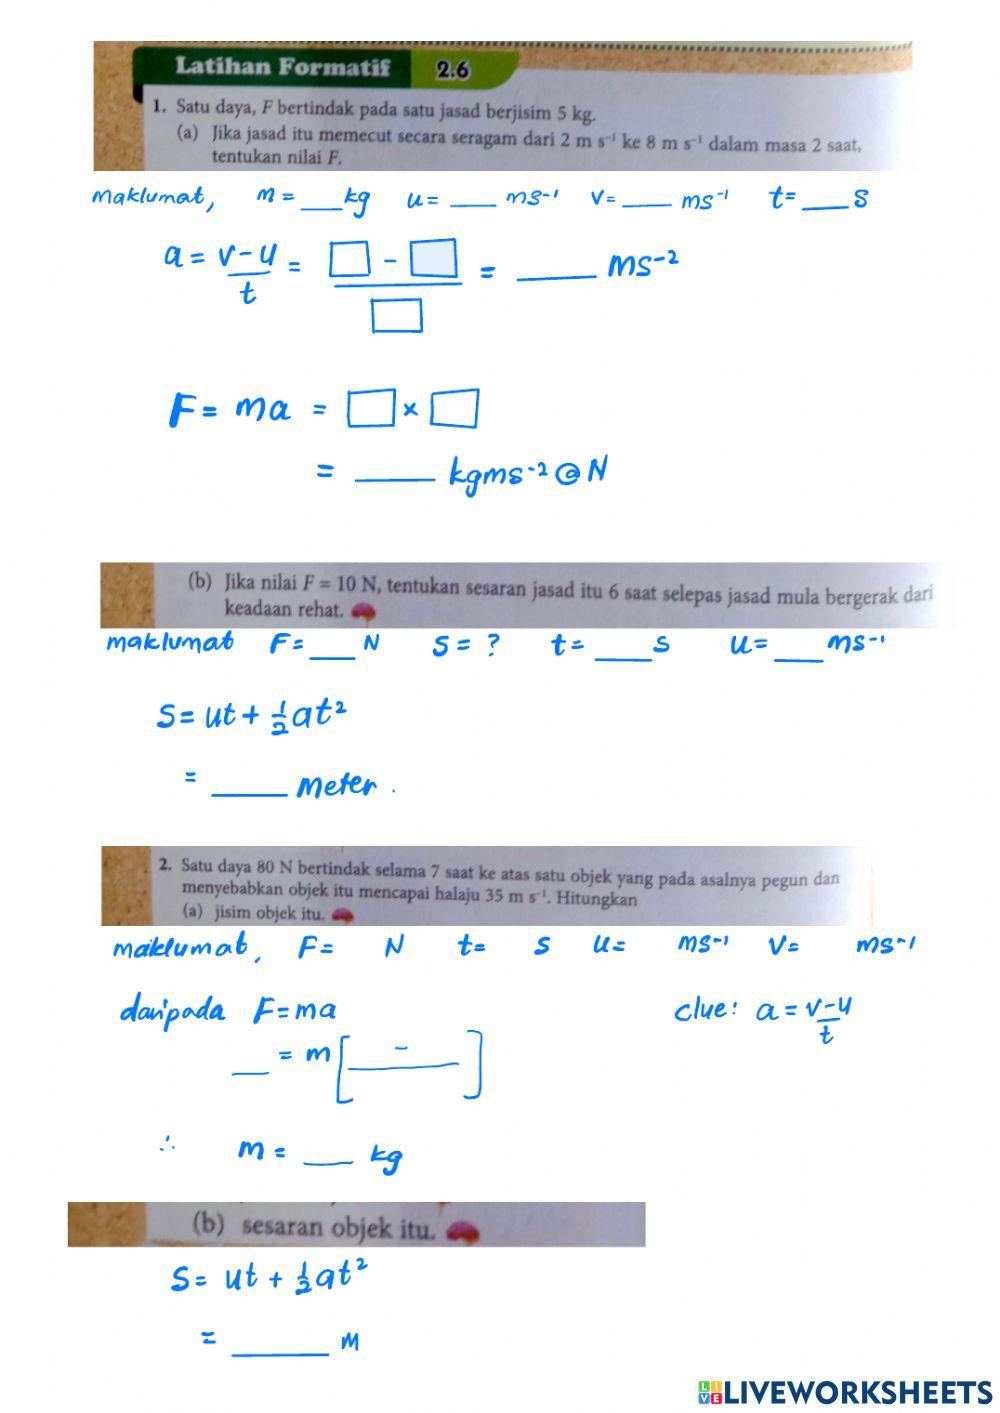 Latihan Formatif 2.6
1. Satu daya, F bertindak pada satu jasad berjisim 5 kg.
(a) Jika jasad itu memecut secara seragam dari 2 m s⁻¹ ke 8 m s⁻¹ dalam masa 2 saat,
tentukan nilai F.
maklumat, m = ___ kg u = ___ ms⁻¹ v = ___ ms⁻¹ t = ___ s
a = v-u/t = □ - □/□ = ___ ms⁻²
F = ma = □ × □
= ___ kgms⁻² @ N
(b) Jika nilai F = 10 N, tentukan sesaran jasad itu 6 saat selepas jasad mula bergerak dari
keadaan rehat.
maklumat F = ___ N s = ? t = ___ s u = ___ ms⁻¹
s = ut + ½at²
= ___ meter.
2. Satu daya 80 N bertindak selama 7 saat ke atas satu objek yang pada asalnya pegun dan
menyebabkan objek itu mencapai halaju 35 m s⁻¹. Hitungkan
(a) jisim objek itu.
maklumat, F = N t = s u = ms⁻¹ v = ms⁻¹
daripada F = ma clue: a = v-u/t
___ = m [ - ]
∴ m = ___ kg
(b) sesaran objek itu.
s = ut + ½at²
= ___ m
LIVE LIVEWORKSHEETS